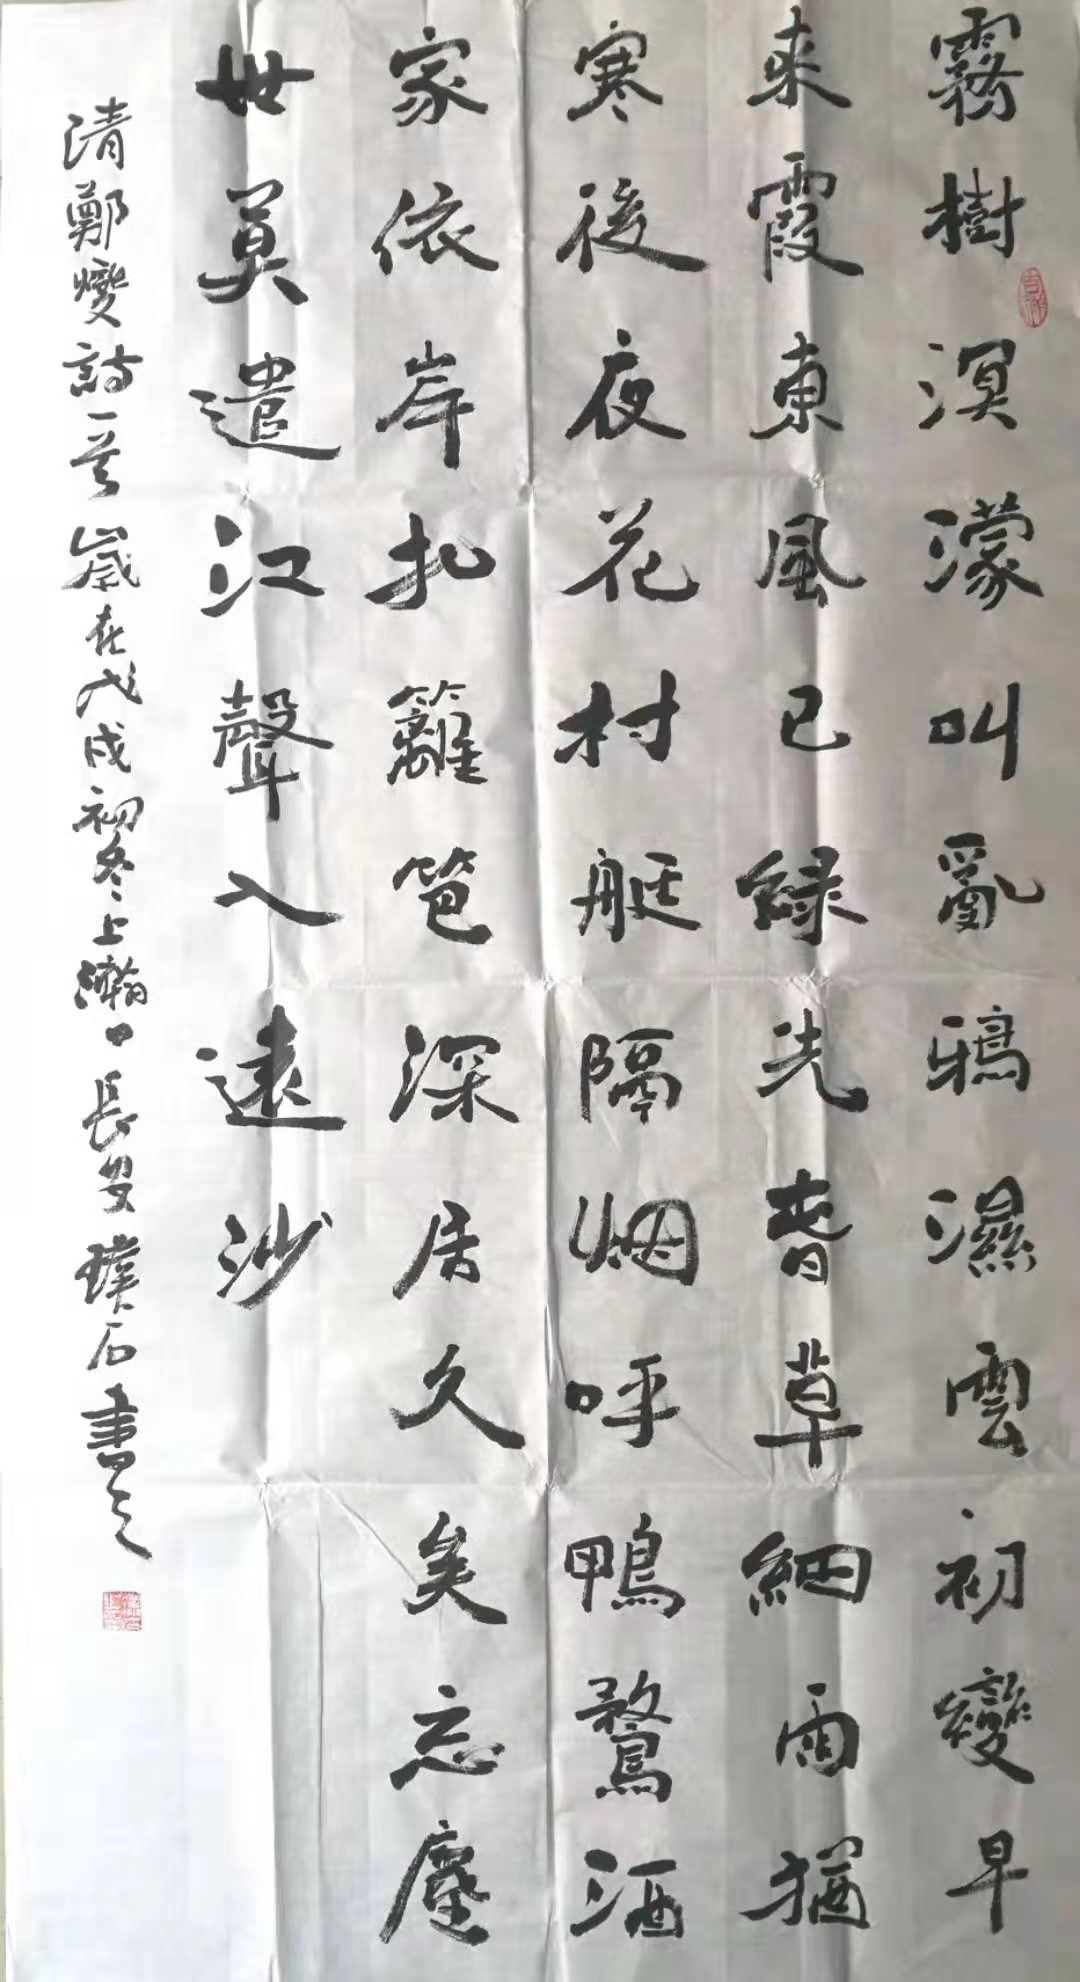 霧樹溟濛叫亂鴉濕雲初變早
来霞東風已緑先春草細雨猶
寒後夜花村艇隔烟呼鴨鶩酒
家依岸扎籬笆深居久矣忘塵
世莫遣江聲入遠沙
清鄭燮詩一首歲在戊戌初冬上瀚日長安璞石書之
吉祥